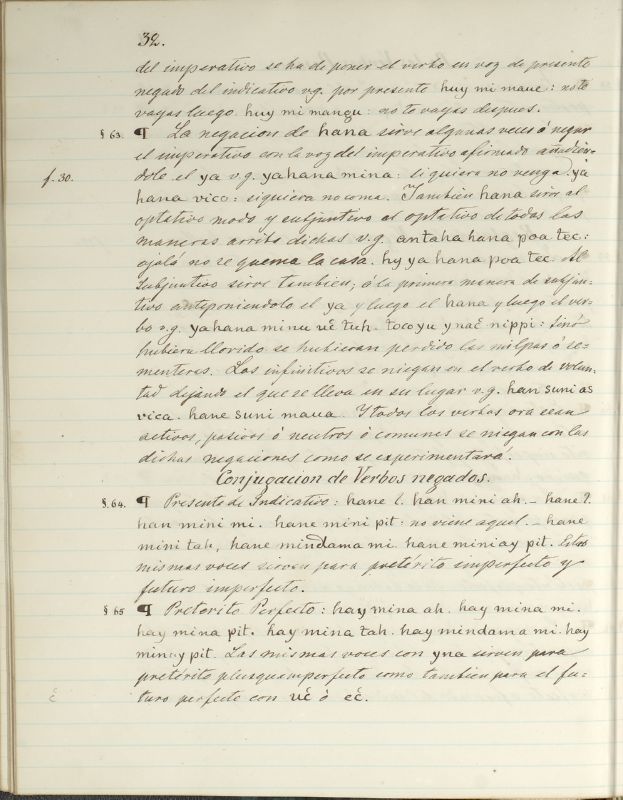 32.
del imperativo se ha de poner el verbo en voz de presente
negado del indicativo vg. por presente huy mi maue: no te
vayas luego. huy mi mangu: no te vayas despues.
§ 63. ¶ La negacion de hana sirve algunas veces á negar
el imperativo con la voz del imperativo afirmado añadien-
f. 30. dole el ya v.g. yahana mina: siquiera no venga. ya
hana vico: siquiera no coma. Tambien hana sirve al
optativo modo y subjuntivo al optativo de todas las
maneras arriba dichas v.g. antaha hana poa tec:
ojalá no se queme la casa. hy ya hana poa tec. Al
Subjuntivo sirve tambien; á la primera manera de subjun-
tivo anteponiendolo el ya y luego el hana y luego el ver-
bo v.g. yahana minu uĉ tuh. tocoyu y naĉ nippi: sinó
hubiera llovido se hubieran perdido las milpas ó se-
menteras. Los infinitivos se niegan en el verbo de volun-
tad dejando el que se lleva en su lugar v.g. han suni as
vica. hane suni maua. Y todos los verbos ora sean
activos, pasivos ó neutros ó comunes se niegan con las
dichas negaciones como se experimentará.
Conjugacion de Verbos negados.
§. 64. ¶ Presente de Indicativo: hane l. han mini ah. – hane l.
han mini mi. hane mini pit: no viene aquel. – hane
mini tah, hane mindama mi. hane miniay pit. Estas
mismas voces sirven para pretérito imperfecto y
futuro imperfecto.
§ 65 ¶ Preterito Perfecto: hay mina ah. hay mina mi.
hay mina pit. hay mina tah. hay mindama mi. hay
minay pit. Las mismas voces con yna sirven para
pretérito plusquamperfecto como tambien para el fu-
ĉ turo perfecto con uĉ ó eĉ.